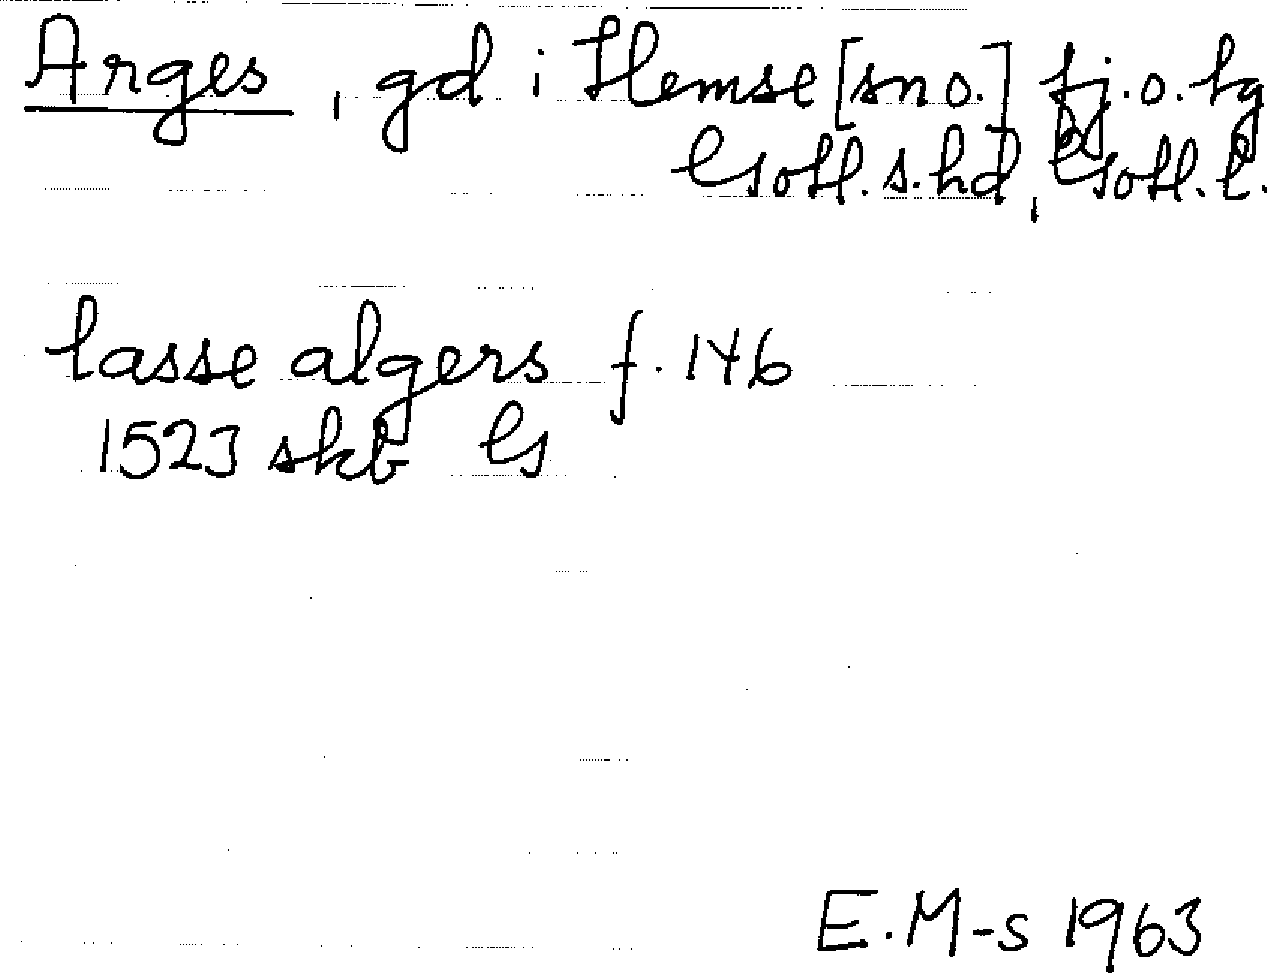 Arges, gd i Hemse [sn o.] tj. o. hg
Gotl. s. hd, Gotl. l.
lasse algers f. 146
1523 skb G
E.M-s 1963